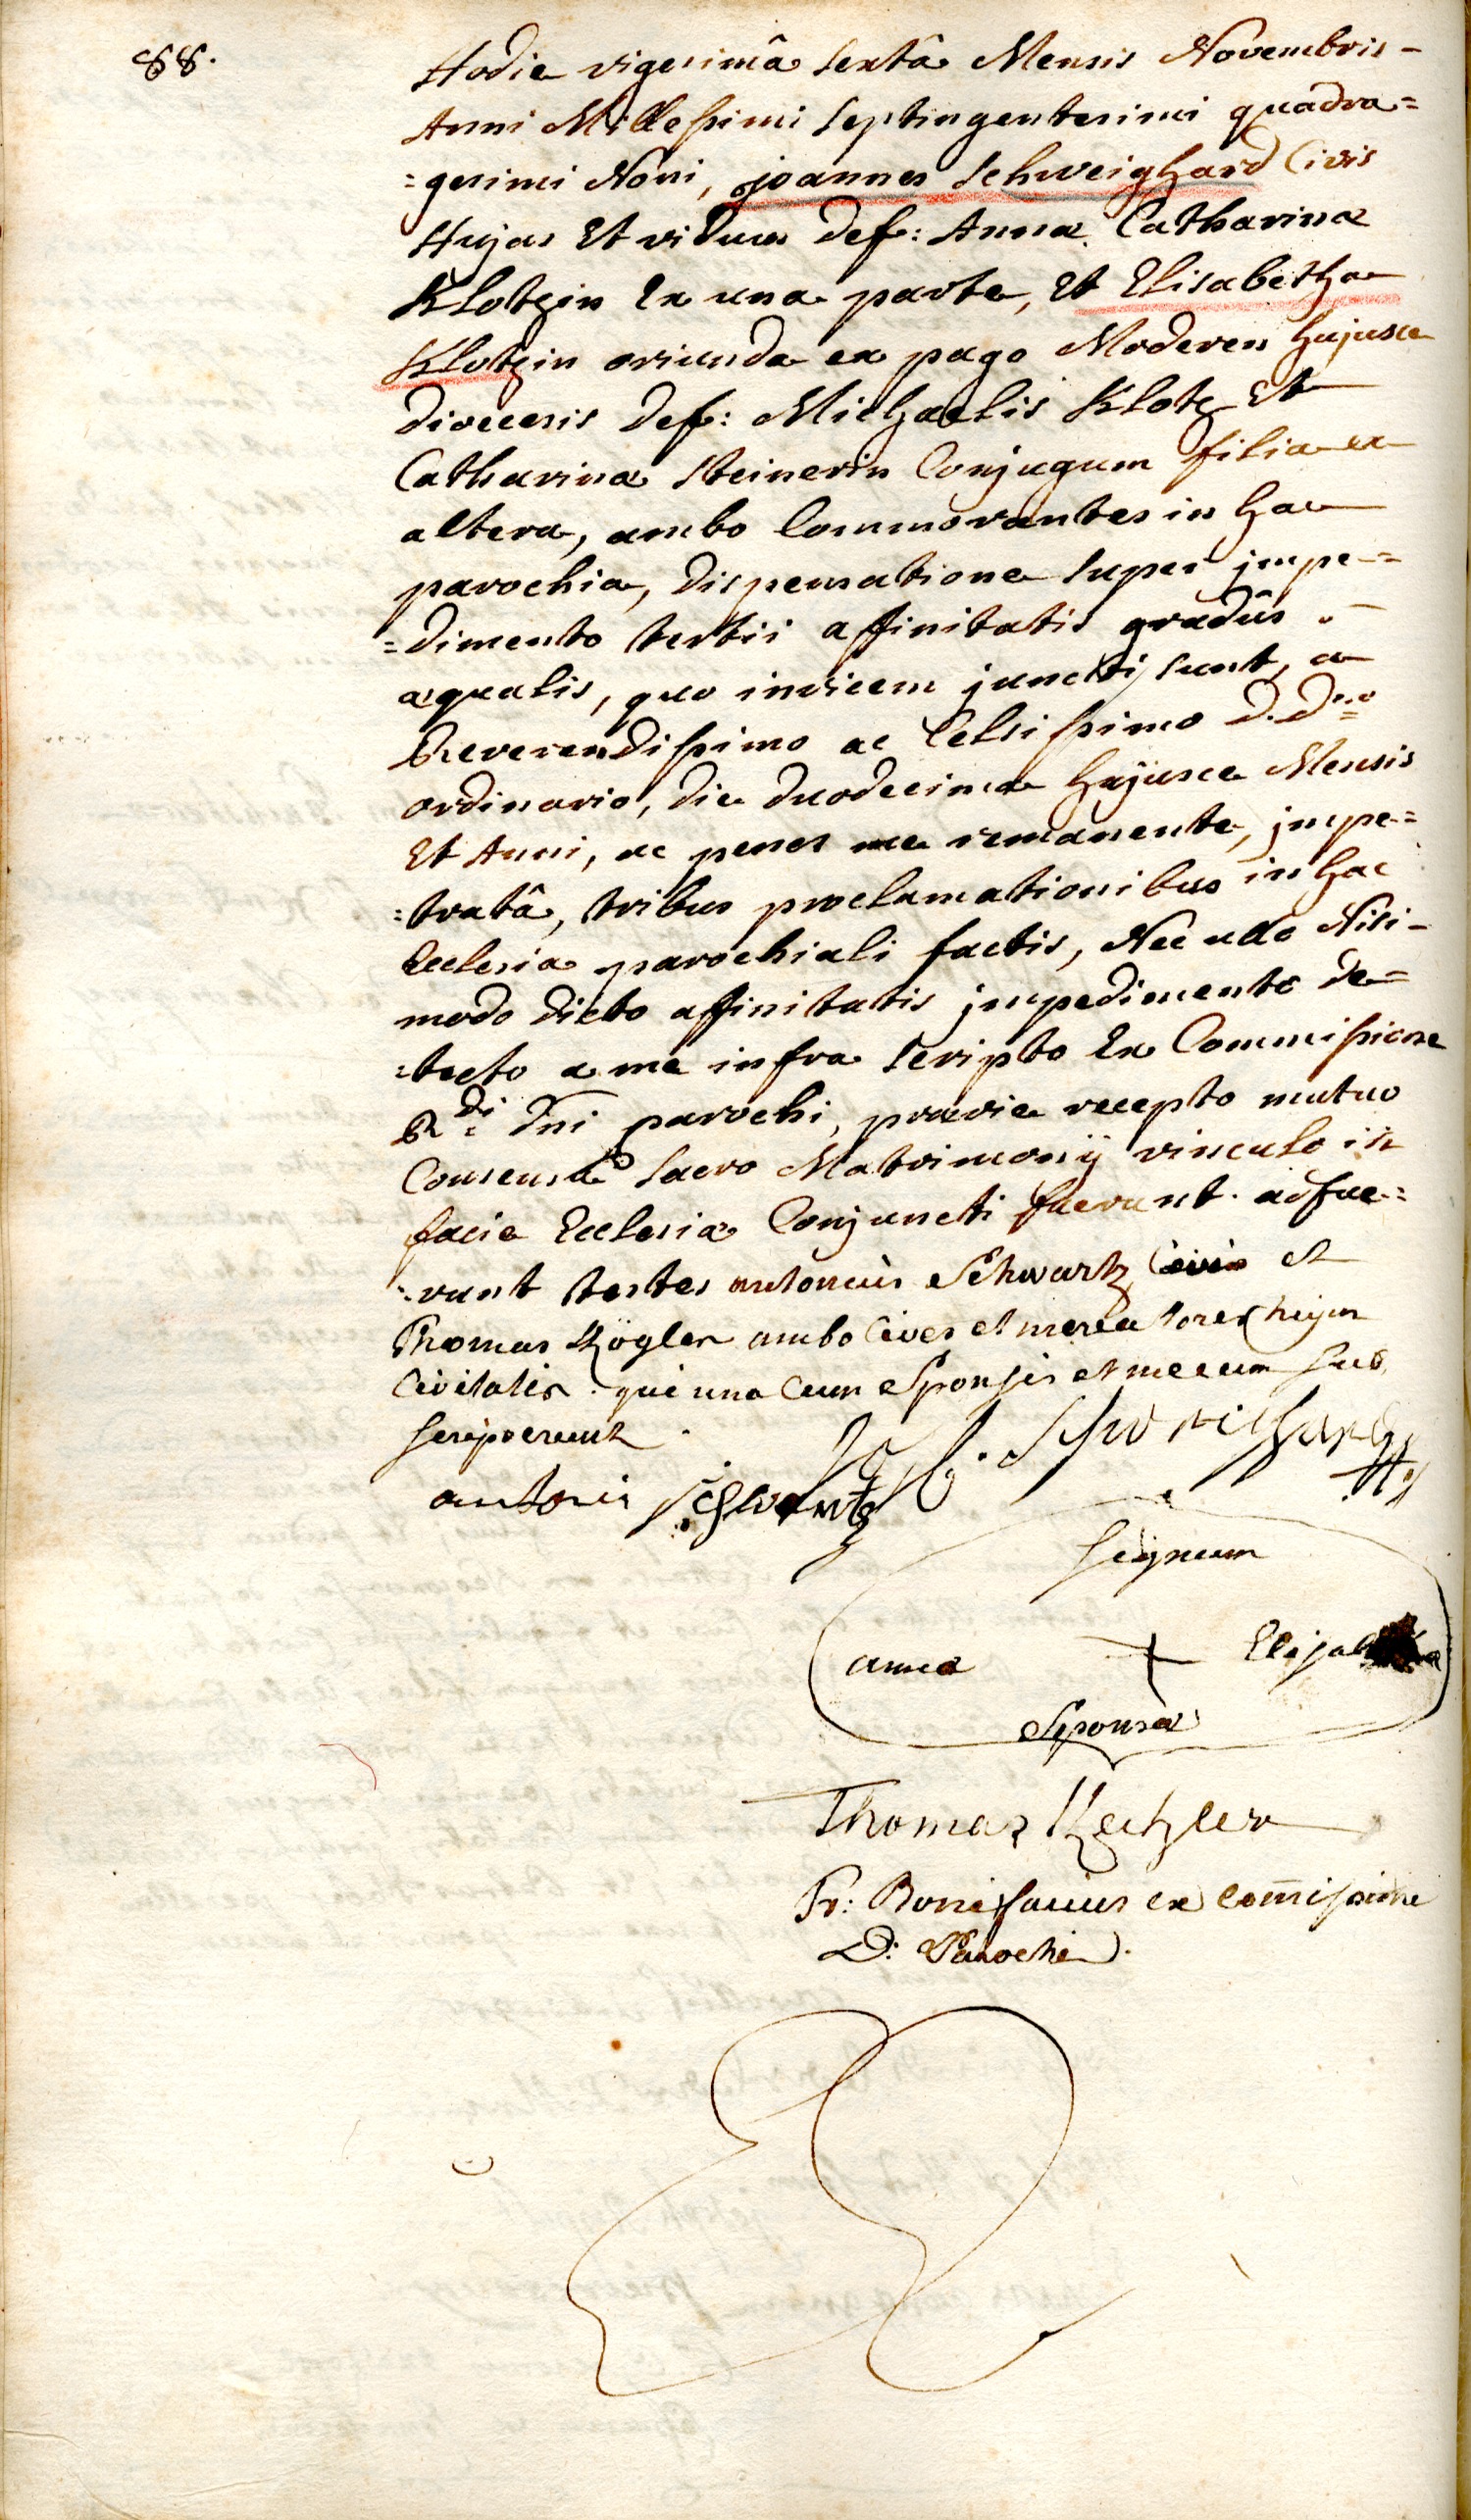 88.
Hodie vigesimâ sextâ Mensis Novembris -
Anni Millesimi septingentesimi quadra=
=gesimi Noni, joannes Schweighard Civis
Hujas Et viduus def: Annæ Catharinæ
Klotzin Ex una parte, Et Elisabetha
Klotzin oriunda ex pago Moderen hujusce
dioecesis def: Michaelis Klotz Et
Catharinæ Steinerin Conjugum filia ex
altera, ambo Commorantes in hac
parochia, dispensatione super impe=
=dimento tertii affinitatis gradûs
æqualis, quo invicem juncti sunt, a
Reverendissimo ac Celsissimo D. Dno
ordinario, die duodecima hujusce Mensis
Et Anni, ac penes me remanente, impe=
=tratâ, tribus proclamationibus in hac
Ecclesia parochiali factis, Nec ullo Nisi
modo dicto affinitatis impedimento de=
=tecto a me infra scripto Ex Commissione
Rdi Dni parochi, prævie recepto mutuo
Consensu sacro Matrimonij vinculo in
facie Ecclesiæ Conjuncti fuerunt. adfue=
=runt testes antonius Schwartz Civis et
Thomas Kögler ambo Cives et mercatores hujus
Civitatis. qui una cum Sponsis et mecum sub
scripserunt.
Schweighard
antoni schwartz
signum
anna + Elisabetha
Sponsæ
Thomas
Fr: Bonifacius ex commissione
D: Parochi.